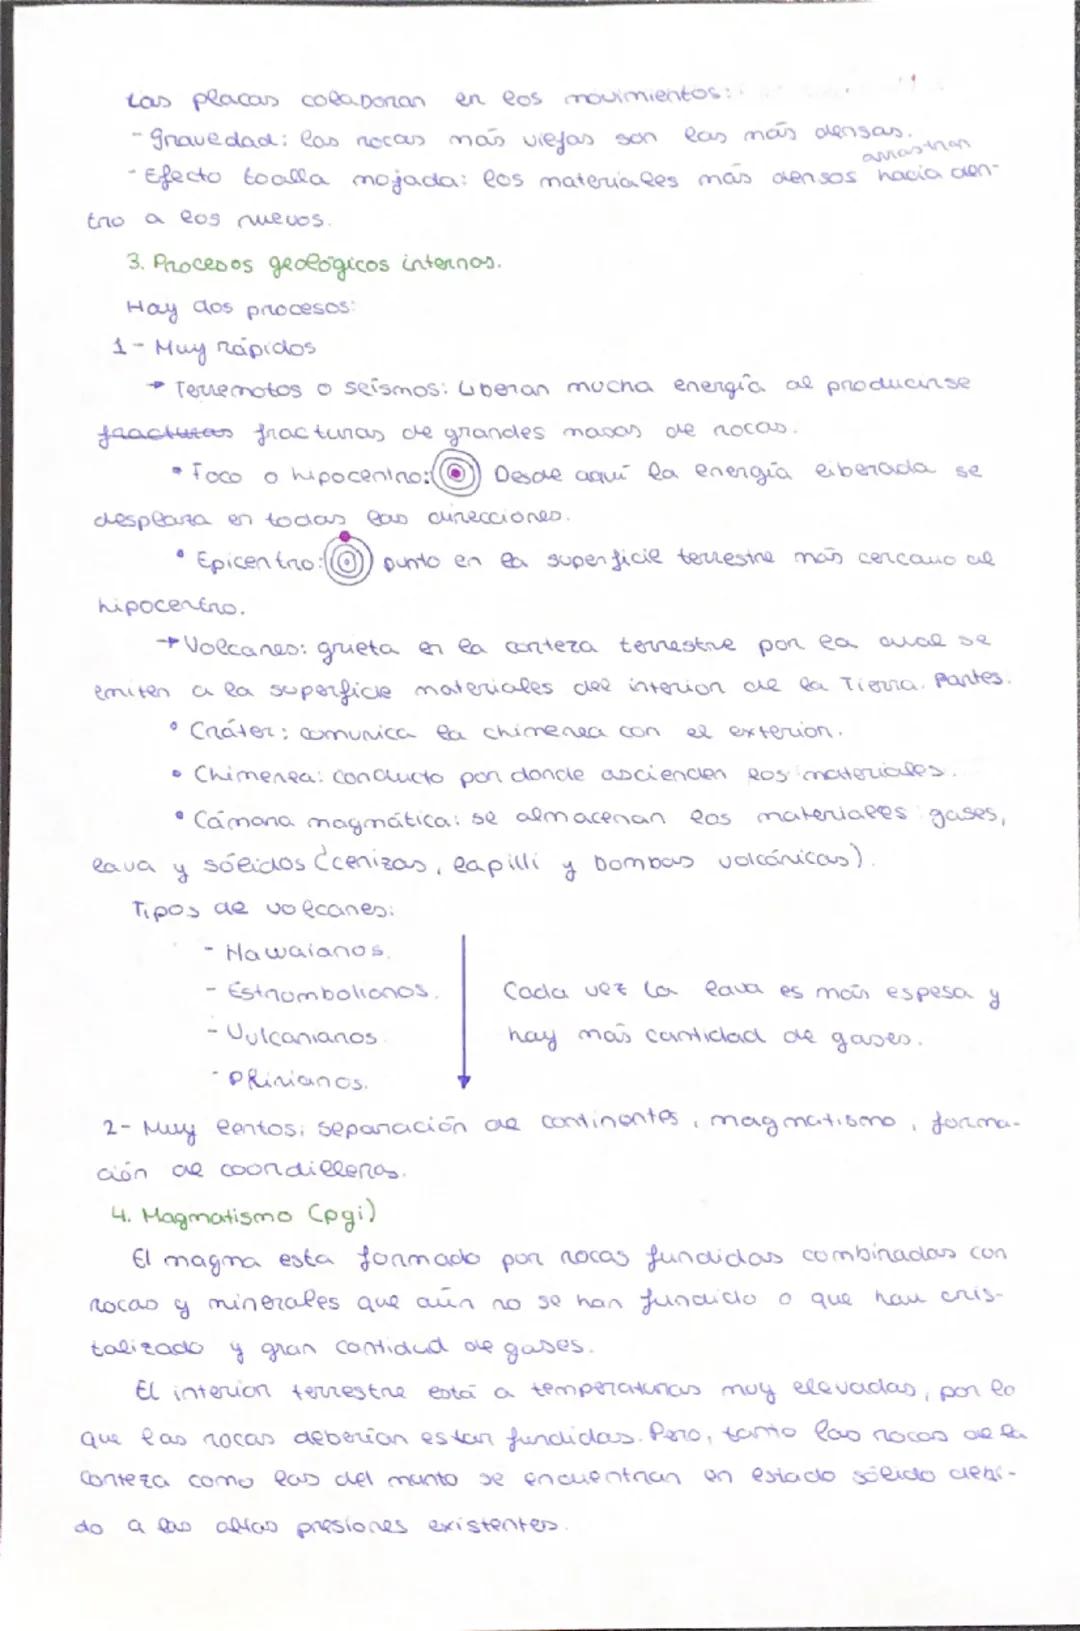 Las placas colaboran en los movimientos:
- Gravedad: las rocas más viejas son las más densas.
- Efecto toalla mojada: los materiales más densos arrastran hacia den-
tro a los nuevos.
3. Procesos geológicos internos.
Hay dos procesos:
1- Muy rápidos
→ Terremotos o seísmos: Liberan mucha energía al producirse
fracturas fracturas de grandes masas de rocas.
• Foco o hipocentro: Desde aquí la energía liberada se
desplaza en todas las direcciones.
• Epicentro: punto en la superficie terrestre más cercano al
hipocentro.
→ Volcanes: grieta en la corteza terrestre por la cual se
emiten a la superficie materiales del interior de la Tierra. Partes.
• Cráter: comunica la chimenea con el exterior.
• Chimenea: conducto por donde ascienden los materiales.
• Cámara magmática: se almacenan los materiales gases,
lava y sólidos (cenizas, lapilli y bombas volcánicas).
Tipos de volcanes:
- Hawaianos.
- Estrombolianos.
- Vulcanianos
- Plinianos.
Cada vez la lava es más espesa y
hay más cantidad de gases.
2- Muy lentos: separación de continentes, magmatismo, forma-
ción de coordilleras.
4. Magmatismo (pgi)
El magma esta formado por rocas fundidas combinadas con
rocas y minerales que aún no se han fundido o que han cris-
talizado y gran cantidad de gases.
El interior terrestre está a temperaturas muy elevadas, por lo
que las rocas deberían estar fundidas. Pero, tanto las rocas de la
corteza como las del manto se encuentran en estado sólido debi-
do a las altas presiones existentes.